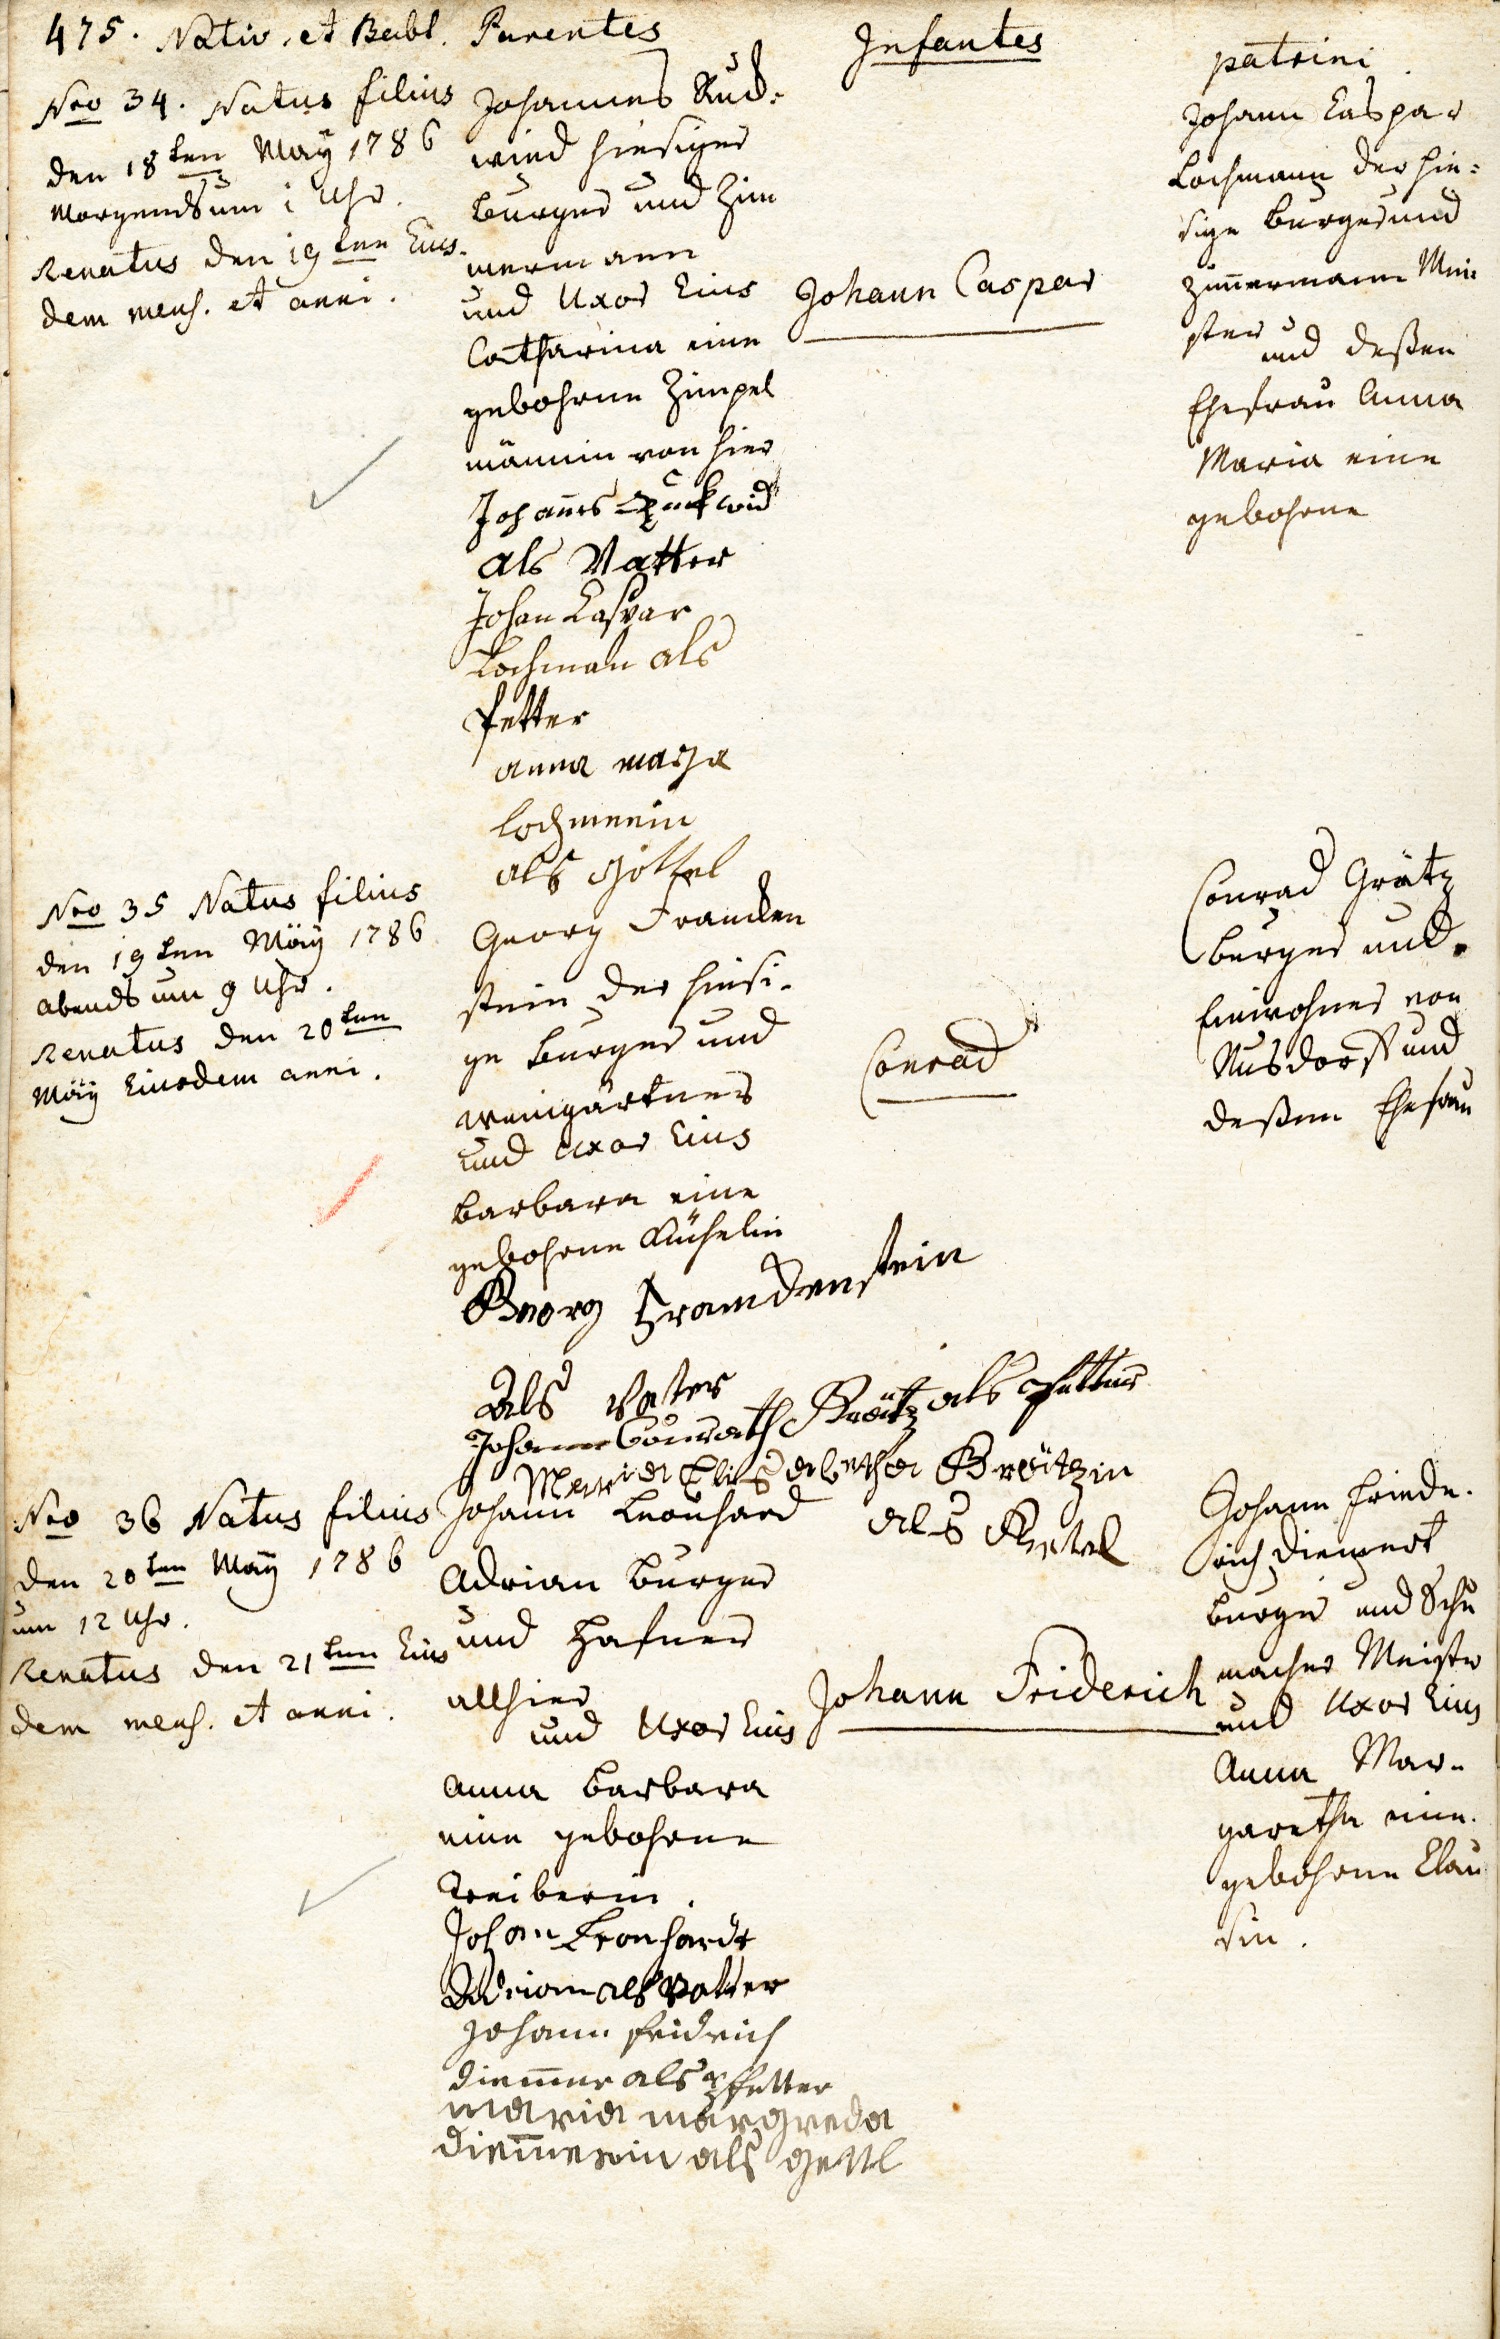 475. Nativ. et Babt. Parentes Infantes patrini
Nro 34. Natus filius
den 18ten Maÿ 1786
Morgends um 1 Uhr.
Renatus den 19ten Eius-
dem mens. et anni.
Johannes Rud-
wied hiesiger
burger und Zim
mermann
und Uxor Eius
Catharina eine
gebohrne Zimpel
männin von hier
Johañes
als Vatter
Johan Casper
Lochman als
Petter
anna maria
Lochmenin
als Göttel
Johann Caspar
Johann Caspar
Lochmann der hie-
sige burger und
Zim̄ermann Mei-
ster und deßen
Ehefrau Anna
Maria eine
gebohrne
Nro 35 Natus filius
den 19ten Maÿ 1786
abends um 9 Uhr.
Renatus den 20ten
Maÿ Eiusdem anni.
Georg Franden
stein der hiesi-
ge burger und
weingärtner
und Uxor Eius
barbara eine
gebohrne Kühelin
Georg Frandenstein
Als Vater
Johann Conrath Grätz als Petter
Maria Elisabetha Grätzin
als Getel
Conrad
Conrad Grätz
burger und
Einwohner von
Nusdorff und
deßen Ehefrau
Nro 36 Natus filius
den 20ten Maÿ 1786
um 12 Uhr.
Renatus den 21ten Eius
dem mens. et anni.
Johann Leonhard
Adrian burger
und Hafner
allhier
und Uxor Eius
Anna barbara
eine gebohrne
Treiberin.
Johan Leonhardt
Adrian als Vatter
Johann fridrich
diem̄er als Pfetter
maria margreda
diem̄erin als gettl
Johann Friderich
Johann friede-
rich
burger und Schu
macher Meister
und Uxor Eius
Anna Mar-
garetha eine
gebohrne Clau
sin.